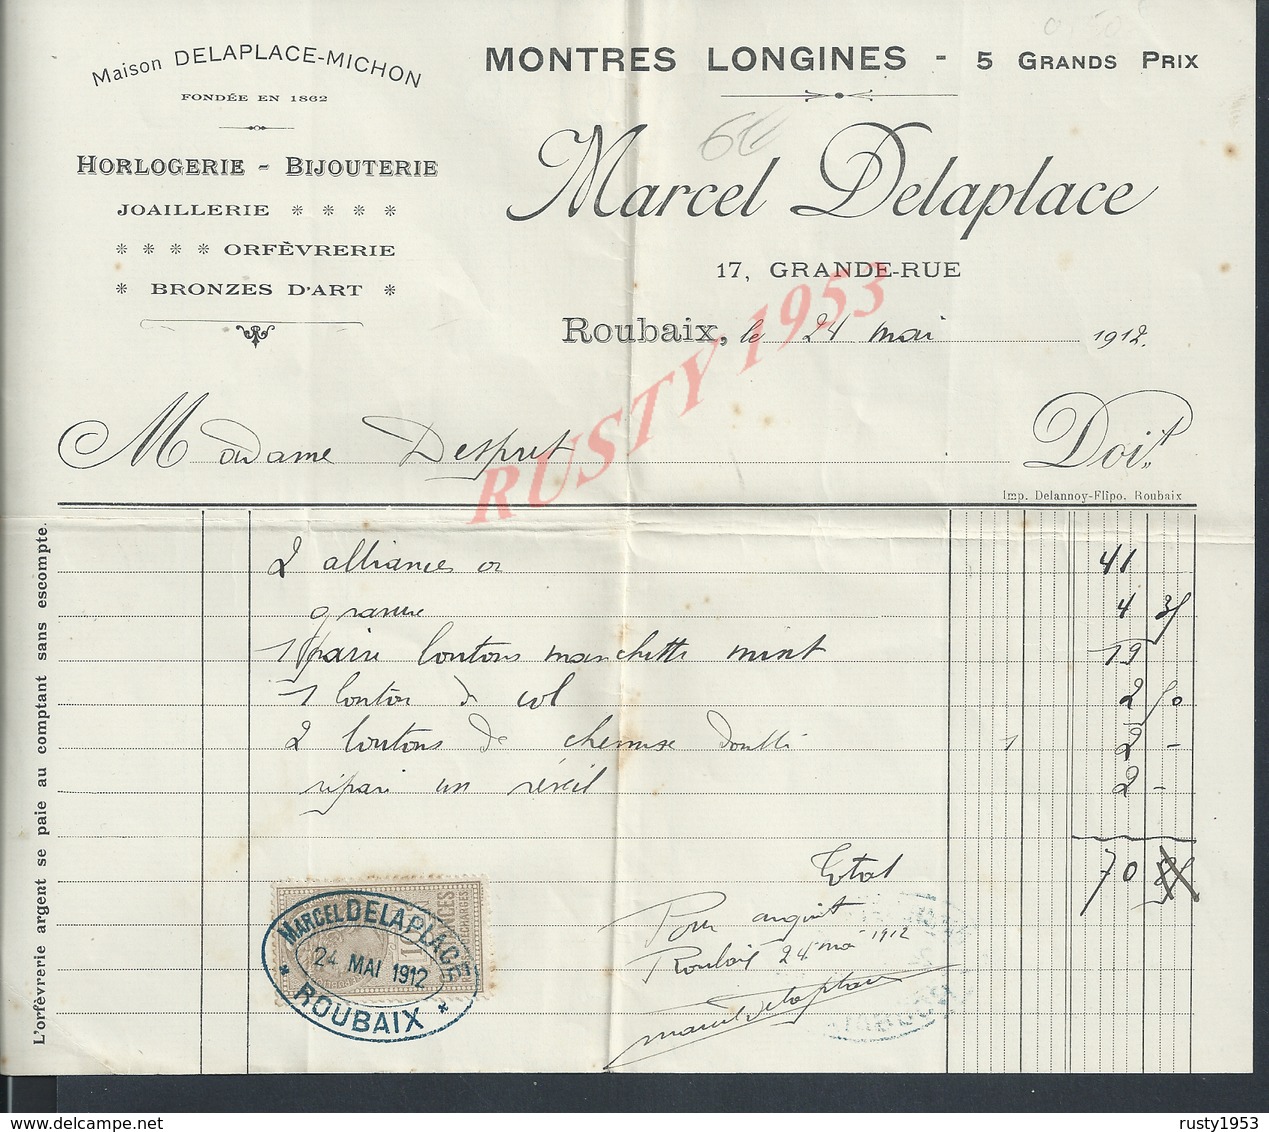 Maison DELAPLACE-MICHON
FONDÉE EN 1862
HORLOGERIE - BIJOUTERIE
JOAILLERIE * * * *
* * * * ORFÈVRERIE
* BRONZES D'ART *
MONTRES LONGINES - 5 GRANDS PRIX
Marcel Delaplace
17, GRANDE-RUE
Roubaix, le 24 mai 1912.
RUSTY 1953
Madame Despret Doit
Imp. Delannoy-Flipo. Roubaix
L'orfèvrerie argent se paie au comptant sans escompte.
2 alliances or 41
gravure 4 35
1 paire boutons manchette 19
1 bouton de col 2 50
2 boutons de chemise doublé 1 2 -
réparé un réveil 2 -
Total 70
Pour acquit
Roubaix 24 mai 1912
Marcel Delaplace
MARCEL DELAPLACE
24 MAI 1912
* ROUBAIX *
delcampe.net
rusty1953